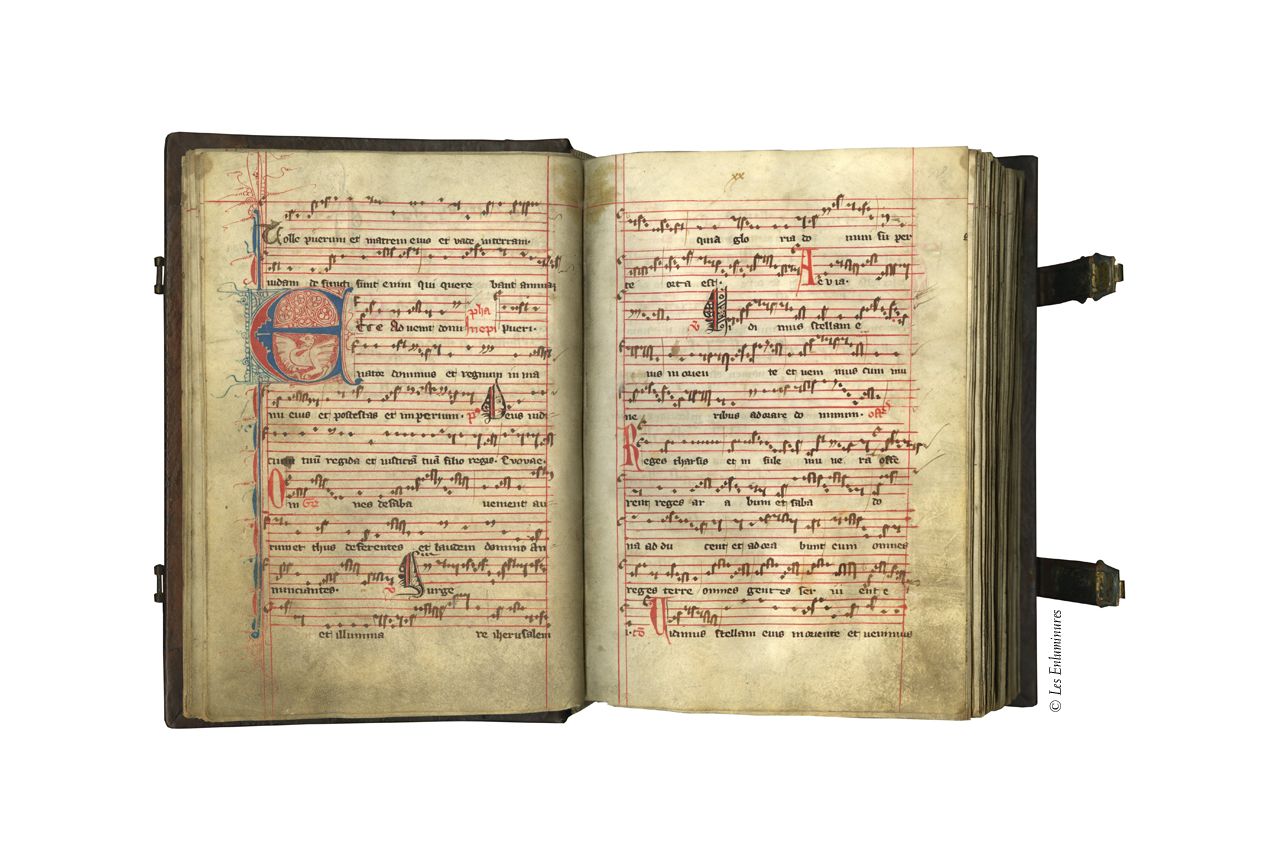 Tolle puerum et matrem eius et vade in terram
iudam defuncti sunt enim qui quere bant animam
pha
Ecce Ad uenit domi nepi pueri.
nator dominus et regnum in ma
nu eius et potestas et imperium. ps Deus iudi
cium tuū regida et iusticiā tuā filio regis. Evovae.
Om Gr nes desaba uenient au
rum et thus deferentes et laudem domino an
nunciantes. v Surge
et illumina re iherusalem
xx
quia glo ria do mini su per
te orta est. Ae v ia.
v di mus stellam e
ius in orien te et veni mus cum mu
ne ribus adorare do minum. offer
Reges tharsis et in sule mu ne ra offe
rent reges ar a bum et saba do
na ad du cent et adora bunt eum omnes
reges terre omnes gentes ser ui ent e
i. cō Uidimus stellam eius in oriente et uenimus
© Les Enluminures